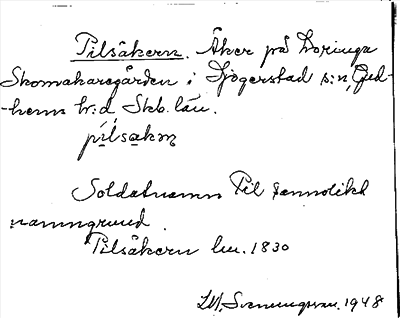 Pilsåkern. Åker på Loringa
Skomakaregården i Sjögerstad s:n, Gud-
-hems hr:d Skb. län.
pilsakɳ
Soldatnamn Pil sannolikt
namngrund.
Pilsåkern lm. 1830
1948